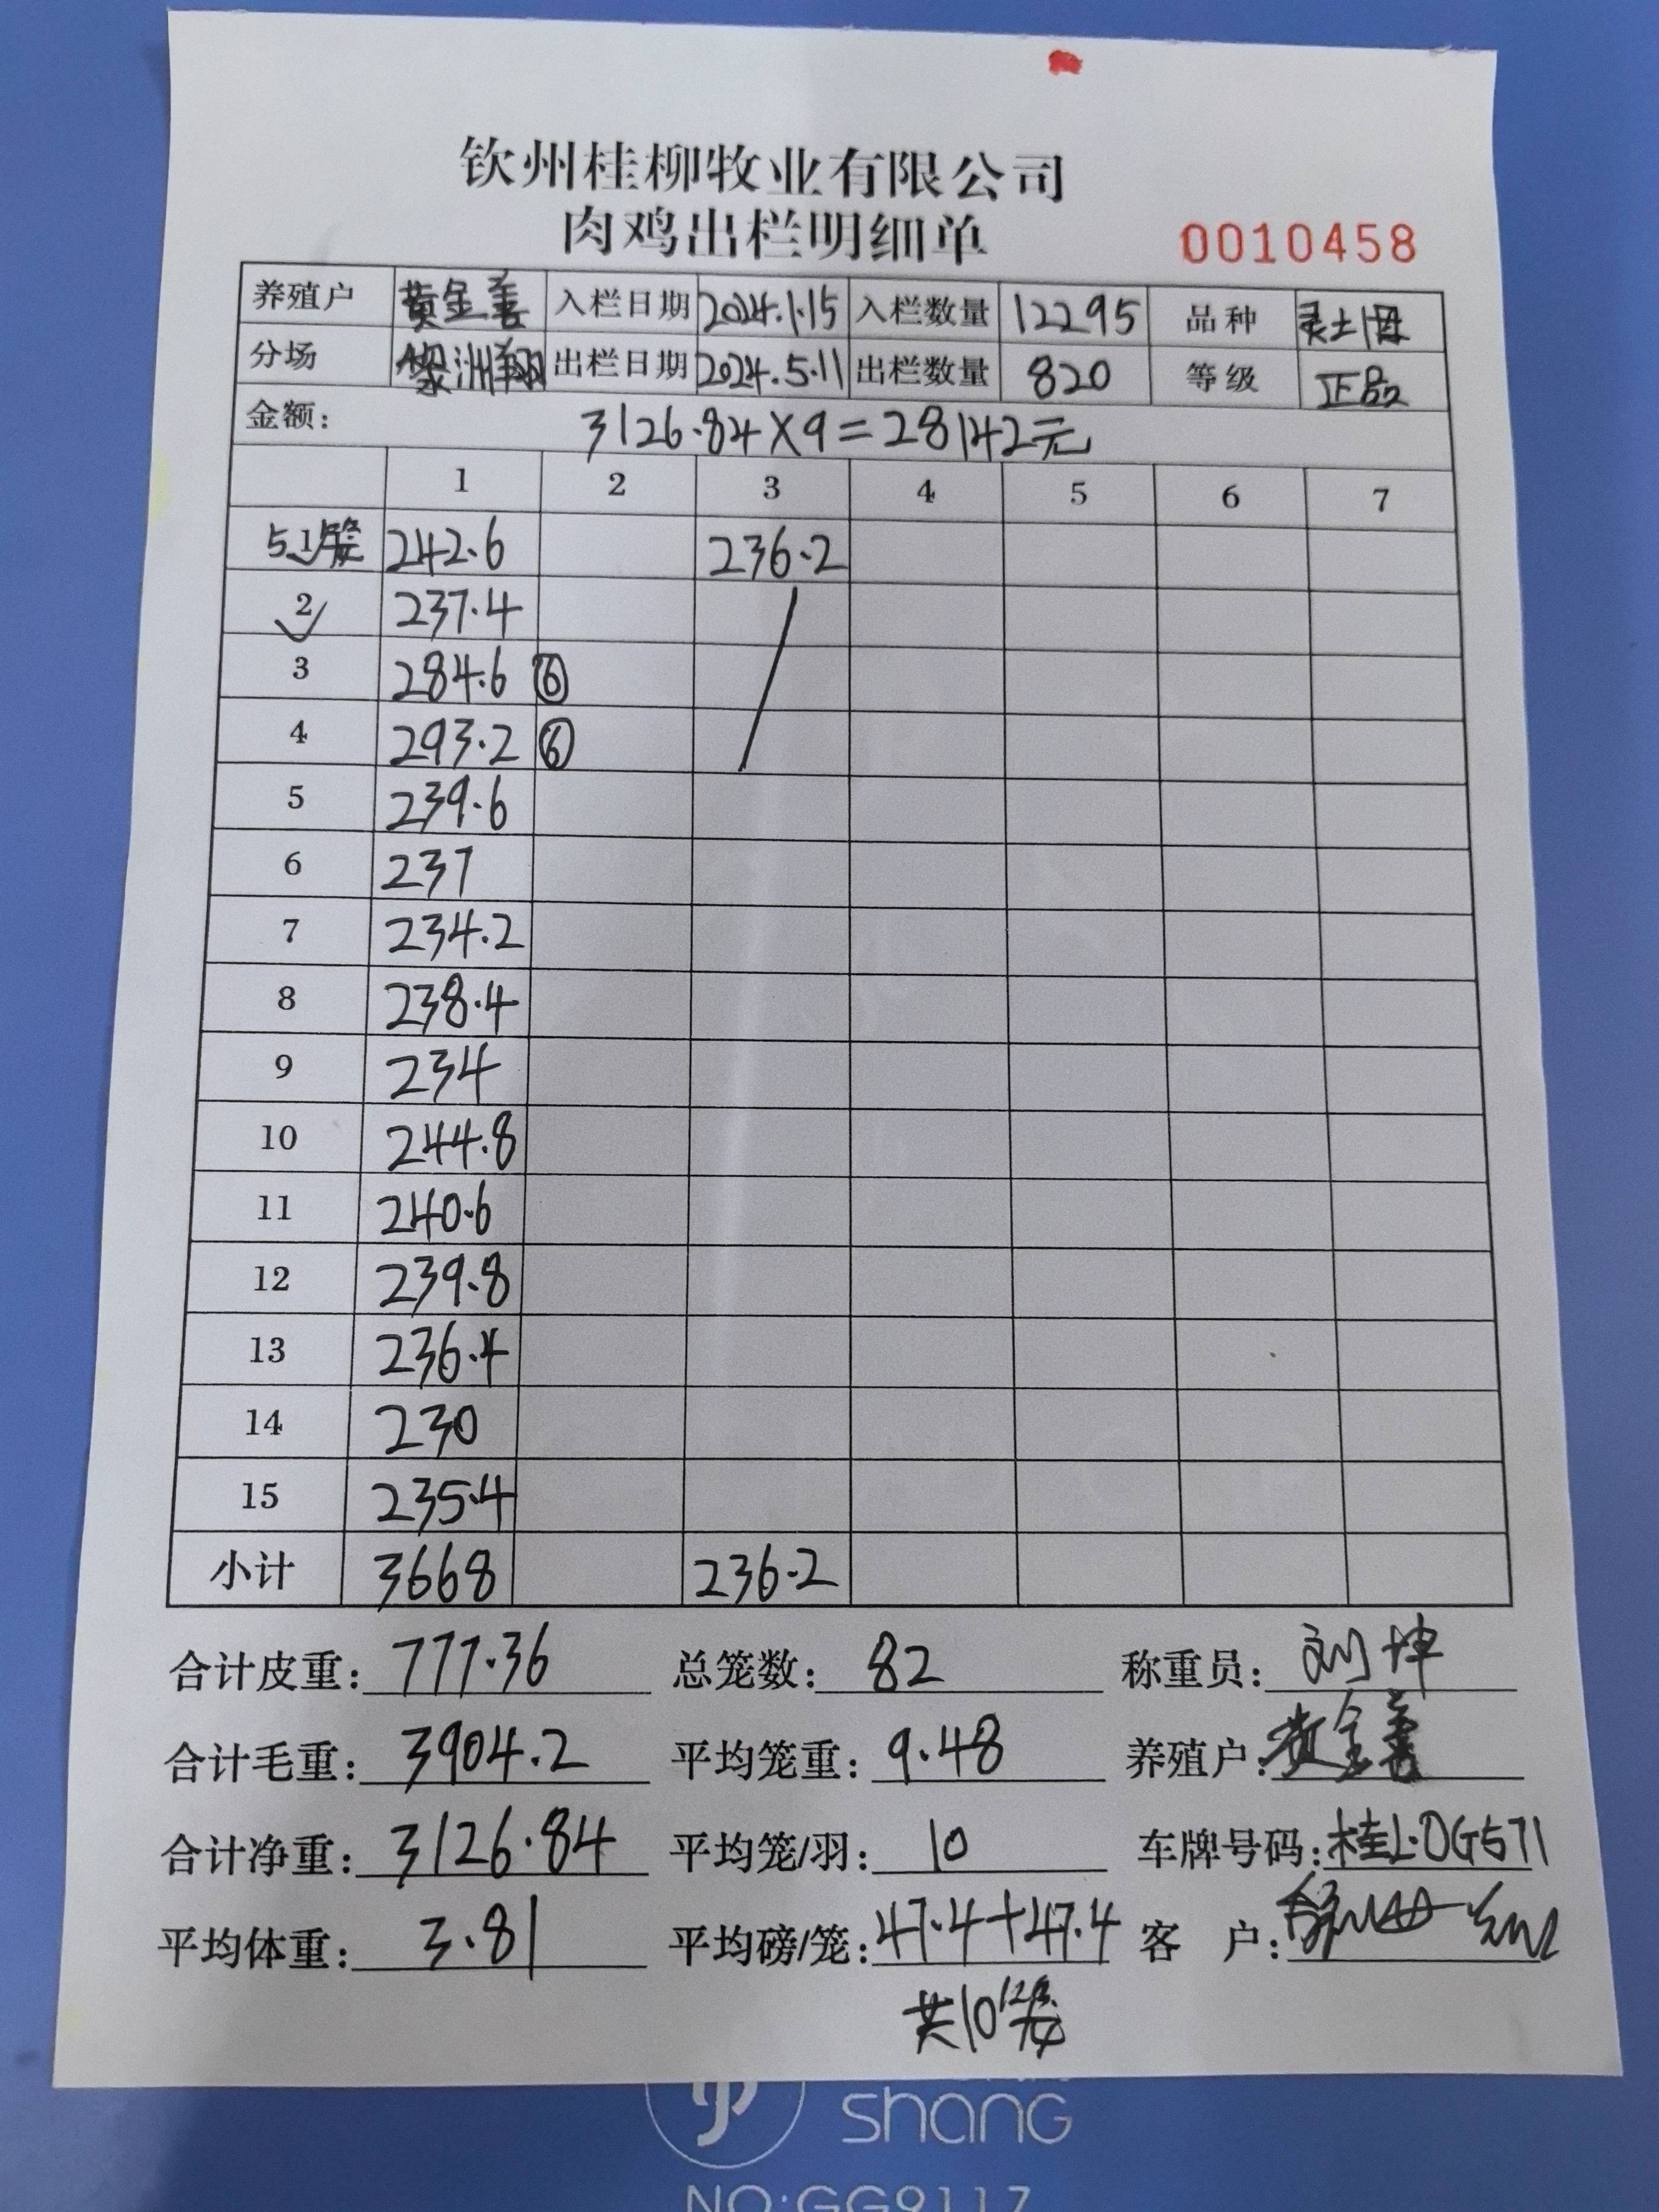 钦州桂柳牧业有限公司
肉鸡出栏明细单
0010458
养殖户 黄金善 入栏日期 2024.1.15 入栏数量 12295 品种 灵土母
分场 黎洲翔 出栏日期 2024.5.11 出栏数量 820 等级 正品
金额: 3126.84×9=28142元
1 2 3 4 5 6 7
5 1笼 242.6 236.2
2 237.4
3 284.6 ⑥
4 293.2 ⑥
5 239.6
6 237
7 234.2
8 238.4
9 234
10 244.8
11 240.6
12 239.8
13 236.4
14 230
15 235.4
小计 3668 236.2
合计皮重: 777.36 总笼数: 82 称重员: 刘坤
合计毛重: 3904.2 平均笼重: 9.48 养殖户: 黄金善
合计净重: 3126.84 平均笼/羽: 10 车牌号码: 桂L·DG571
平均体重: 3.81 平均磅/笼: 47.4+47.4 客户:
共10笼
shang
NO:GG9117